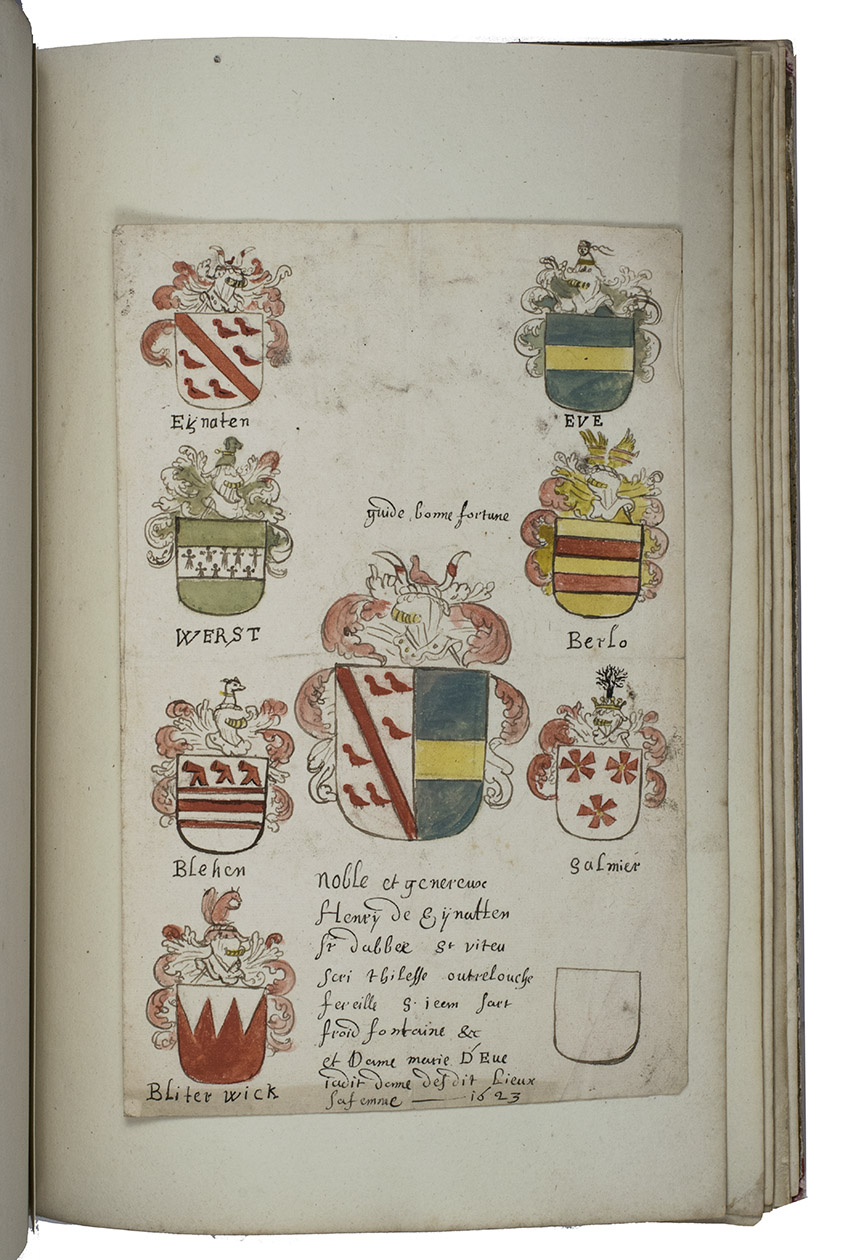 Eÿnaten
EVE
guide bonne fortune
WERST
Berlo
Blehen
Salmier
Bliter wick
noble et genereux
Henrÿ de Eÿnatten
Sr dabbee St viteu
Scri thilesse outrelouche
fereille S. jeem Sart
froid fontaine &c
et Dame marie D'Eve
iadit dame desdit Lieux
Sa femme — 1623